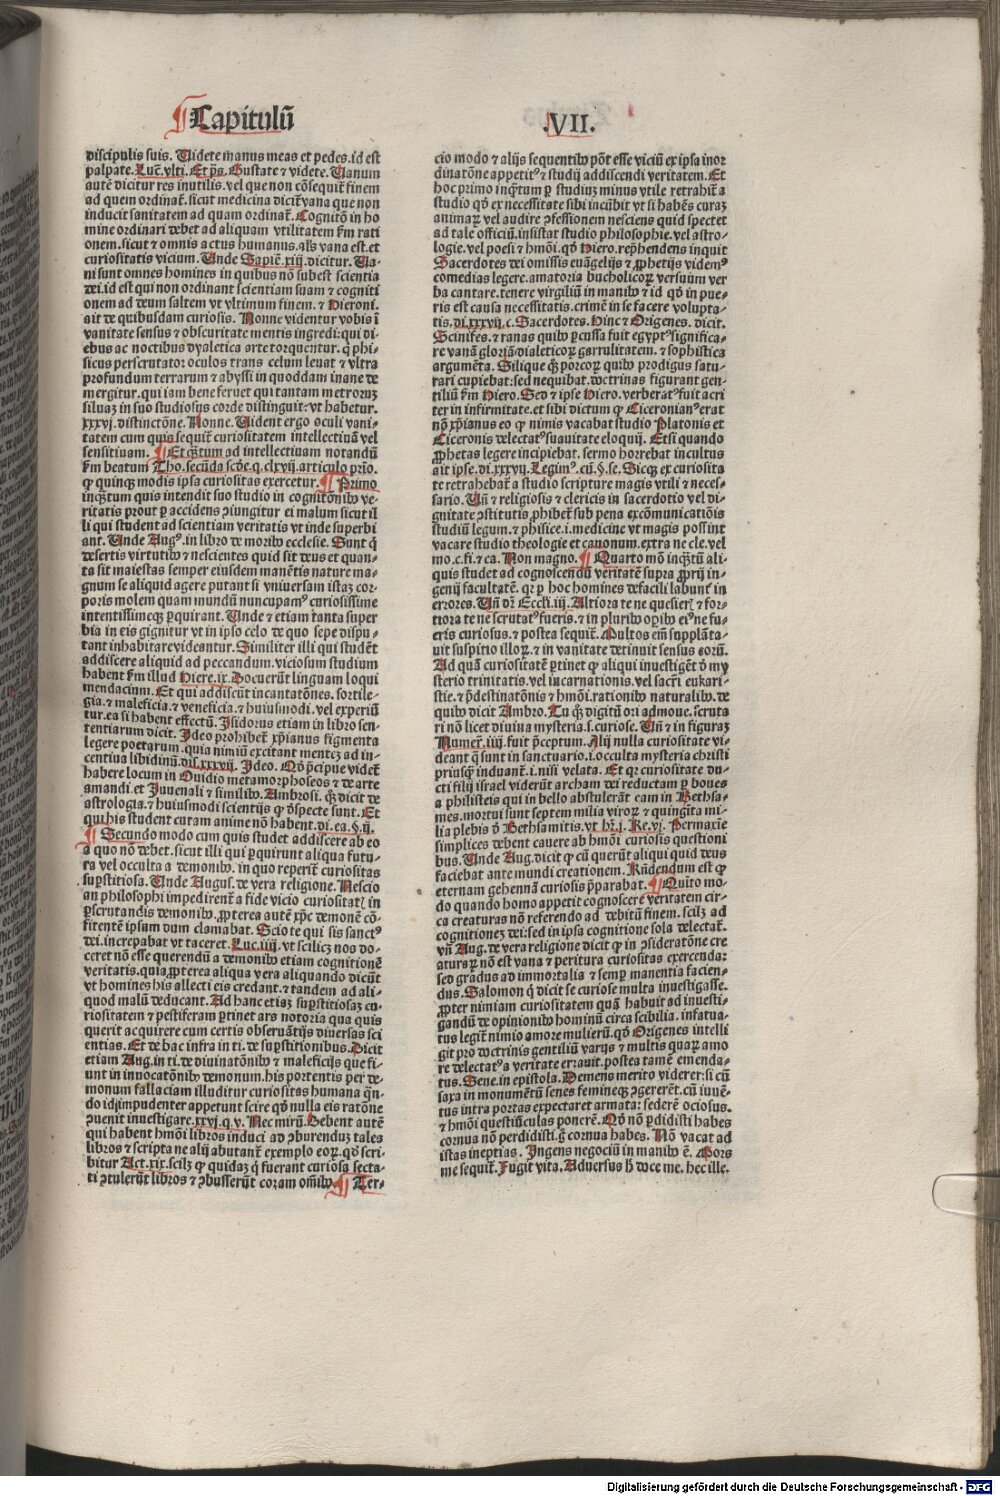 Capitulū
.VII.
discipulis suis. Videte manus meas et pedes. id est
palpate. Luc̄. vlti. Et p̄s. Gustate ⁊ videte. Vanum
autē dicitur res inutilis. vel que non cōsequit᷑ finem
ad quem ordinat᷑. sicut medicina dicit᷑ vana que non
inducit sanitatem ad quam ordinat᷑. Cognitō in ho
mine ordinari debet ad aliquam vtilitatem ẜm rati
onem. sicut ⁊ omnis actus humanus. als̄ vana est. et
curiositatis vicium. Unde Sapiē. xiij. dicitur. Va-
ni sunt omnes homines in quibus nō subest scientia
dei. id est qui non ordinant scientiam suam ⁊ cogniti
onem ad deum saltem vt vltimum finem. ⁊ Hieroni.
ait de quibusdam curiosis. Nonne videntur vobis ī
vanitate sensus ⁊ obscuritate mentis ingredi: qui di-
ebus ac noctibus dyaletica arte torquentur. q̄ phi-
sicus perscrutator oculos trans celum leuat ⁊ vltra
profundum terrarum ⁊ abyssi in quoddam inane de
mergitur. qui iam bene feruet qui tantam metroruꝫ
siluaꝫ in suo studiosus corde distinguit: vt habetur.
xxxvj. distinctōne. Nonne. Vident ergo oculi vani-
tatem cum quis sequit᷑ curiositatem intellectiuā vel
sensitiuam. ¶ Et qꝫtum ad intellectiuam notandū
ẜm beatum Tho. secūda scd̄e. q. clxvij. articulo pr̄io.
ꝙ quinqꝫ modis ipsa curiositas exercetur. ¶ Primo
inqꝫtum quis intendit suo studio in cognitōnibꝰ ve-
ritatis prout ꝑ accidens ꝯiungitur ei malum sicut il
li qui student ad scientiam veritatis vt inde superbi
ant. Unde Augꝰ. in libro de moribꝰ ecclesie. Sunt q̄
desertis virtutibꝰ ⁊ nescientes quid sit deus et quan-
ta sit maiestas semper eiusdem manētis nature ma-
gnum se aliquid agere putant si vniuersam istaꝫ cor-
poris molem quam mundū nuncupamꝰ curiosissime
intentissimeqꝫ ꝑquirant. Unde ⁊ etiam tanta super
bia in eis gignitur vt in ipso celo de quo sepe dispu-
tant inhabitare videantur. Similiter illi qui studēt
addiscere aliquid ad peccandum. viciosum studium
habent ẜm illud Hiere. ix. Docuerūt linguam loqui
mendacium. Et qui addiscūt incantatōnes. sortile-
gia. ⁊ maleficia. ⁊ veneficia. ⁊ huiusmodi. vel experiū
tur. ea si habent effectū. Isidorus etiam in libro sen-
tentiarum dicit. Ideo prohibet᷑ xp̄ianus figmenta
legere poetarum. quia nimiū excitant mentez ad in-
centiua libidinū. dis. xxxvij. Ideo. Qd̄ p̄cipue videt᷑
habere locum in Ouidio metamorphoseos ⁊ de arte
amandi. et Juuenali ⁊ similibꝰ. Ambrosi. qꝫ. dicit de
astrologia. ⁊ huiusmodi scientijs ꝙ despecte sunt. Et
qui his student curam anime nō habent. di. ea. §. ij.
¶ Secundo modo cum quis studet addiscere ab eo
a quo nō debet. sicut illi qui ꝑquirunt aliqua futu-
ra vel occulta a demonibꝰ. in quo reperit᷑ curiositas
suꝑstitiosa. Unde Augus. de vera religione. Nescio
an philosophi impedirent᷑ a fide vicio curiositat in
ꝑscrutandis demonibꝰ. ꝓpterea autē xp̄c demonē cō-
fitentē ipsum dum clamabat. Scio te qui sis sanctꝰ
dei. increpabat vt taceret. Luc. iiij. vt scilicꝫ nos do-
ceret nō esse querendū a demonibꝰ etiam cognitionē
veritatis. quia ꝓpterea aliqua vera aliquando dicūt
vt homines his allecti eis credant. ⁊ tandem ad ali-
quod malū deducant. Ad hanc etiaꝫ suꝑstitiosaꝫ cu-
riositatem ⁊ pestiferam ꝑtinet ars notoria qua quis
querit acquirere cum certis obseruātijs diuersas sci
entias. Et de hac infra in ti. de suꝑstitionibus. Dicit
etiam Aug. in ti. de diuinatōnibꝰ ⁊ maleficijs que fi-
unt in inuocatōnibꝰ demonum. his portentis per de-
monum fallaciam illuditur curiositas humana qn̄-
do id impudenter appetunt scire qd̄ nulla eis ratōne
ꝯuenit inuestigare. xxvj. q. v. Nec mirū. Debent autē
qui habent hmōi libros induci ad ꝯburenduꝫ tales
libros ⁊ scripta ne alij abutant᷑ exemplo eoꝝ. qd̄ scri-
bitur Act. xix. scilꝫ ꝙ quidaꝫ q̄ fuerant curiosa secta-
ti ꝯtulerūt libros ⁊ ꝯbusserūt coram om̄ibꝰ. ¶ Ter-
cio modo ⁊ alijs sequentibꝰ pōt esse viciū ex ipsa inor
dinatōne appetitꝰ ⁊ studij addiscendi veritatem. Et
hoc primo inqꝫtum ꝑ studiuꝫ minus vtile retrahit᷑ a
studio qd̄ ex necessitate sibi incūbit vt si habēs curaꝫ
animaꝝ vel audire ꝯfessionem nesciens quid spectet
ad tale officiū. insistat studio philosophie. vel astro-
logie. vel poesi ⁊ hmōi. qd̄ Hiero. rep̄hendens inquit
Sacerdotes dei omissis euāgelijs ⁊ ꝓphetijs videmꝰ
comedias legere. amatoria bucholicoꝝ versuum ver
ba cantare. tenere virgiliū in manibꝰ ⁊ id qd̄ in pue-
ris est causa necessitatis. crimē in se facere volupta-
tis. di. xxxvij. c. Sacerdotes. Hinc ⁊ Origenes. dicit.
Scinifes. ⁊ ranas quibꝰ ꝑcussa fuit egyptꝰ significa-
re vanā gloriā dialeticoꝝ garrulitatem. ⁊ sophistica
argumēta. Siliquę qꝫ porcoꝝ quibꝰ prodigus satu-
rari cupiebat: sed nequibat. doctrinas figurant gen-
tiliū ẜm Hiero. Sed ⁊ ipse Hiero. verberatꝰ fuit acri
ter in infirmitate. et sibi dictum ꝙ Ciceronianꝰ erat
nō xp̄ianus eo ꝙ nimis vacabat studio Platonis et
Ciceronis delectatꝰ suauitate eloquij. Et si quando
ꝓphetas legere incipiebat. sermo horrebat incultus
ait ipse. di. xxxvij. Legimꝰ. cū. §. se. Sicqꝫ ex curiosita
te retrahebat᷑ a studio scripture magis vtili ⁊ neces-
sario. Un̄ ⁊ religiosis ⁊ clericis in sacerdotio vel di-
gnitate ꝯstitutis ꝓhibet᷑ sub pena excōmunicatiōis
studiū legum. ⁊ phisice. i. medicine vt magis possint
vacare studio theologie et canonum. extra ne cle. vel
mo. c. fi. ⁊ ca. Non magno. ¶ Quarto mō inqꝫtū ali-
quis studet ad cognoscendū veritatē supra ꝓprij in-
genij facultatē. qꝛ ꝑ hoc homines de facili labunt᷑ in
errores. Un̄ dr̄ Eccli. iij. Altiora te ne quesier̄. ⁊ for-
tiora te ne scrutatꝰ fueris. ⁊ in pluribꝰ oꝑibꝰ eiꝰ ne fu-
eris curiosus. ⁊ postea sequit᷑. Multos em̄ supplāta-
uit suspitio illoꝝ. ⁊ in vanitate detinuit sensus eorū.
Ad quā curiositatē ꝑtinet ꝙ aliqui inuestigēt de my
sterio trinitatis. vel incarnationis. vel sacri eukari-
stie. ⁊ p̄destinatōnis ⁊ hmōi. rationibꝰ naturalibꝰ. de
quibꝰ dicit Ambro. Tu qꝫ digitū ori admoue. scruta
ri nō licet diuina mysteria. s. curiose. Un̄ ⁊ in figuraꝫ
Numer̄. iiij. fuit p̄ceptum. Alij nulla curiositate vi-
deant q̄ sunt in sanctuario. i. occulta mysteria christi
priusqꝫ induant᷑. i. nisi velata. Et qꝛ curiositate du-
cti filij israel viderūt archam dei reductam ꝑ boues
a philisteis qui in bello abstulerāt eam in Bethsa-
mes. mortui sunt septem milia viroꝝ ⁊ quingīta mi-
lia plebis de Bethsamitis. vt hr̄. j. Re. vj. Permaxīe
simplices debent cauere ab hmōi curiosis questioni
bus. Unde Aug. dicit ꝙ cū querūt aliqui quid deus
faciebat ante mundi creationem. Rn̄dendum est ꝙ
eternam gehennā curiosis p̄parabat. ¶ Quīto mo-
do quando homo appetit cognoscere veritatem cir-
ca creaturas nō referendo ad debitū finem. scilꝫ ad
cognitionez dei: sed in ipsa cognitione sola delectat᷑.
vn̄ Aug. de vera religione dicit ꝙ in ꝯsideratōne cre
aturaꝝ nō est vana ⁊ peritura curiositas exercenda:
sed gradus ad immortalia ⁊ semꝑ manentia facien-
dus. Salomon q̄ dicit se curiose multa inuestigasse.
ꝓpter nimiam curiositatem quā habuit ad inuesti-
gandū de opinionibꝰ hominū circa scibilia. infatua-
tus legit᷑ nimio amore mulierū. qd̄ Origenes intelli
git pro doctrinis gentiliū varijs ⁊ multis quaꝝ amo
re delectatꝰ a veritate errauit. postea tamē emenda-
tus. Sene. in epistola. Demens merito viderer: si cū
saxa in monumētū senes femineqꝫ ꝯgererēt. cū iuuē-
tus intra portas expectaret armata: sederē ociosus.
⁊ hmōi questiūculas ponerē. Qd̄ nō ꝑdidisti habes
cornua nō perdidisti. g̊ cornua habes. Nō vacat ad
istas ineptias. Ingens negociū in manibꝰ ē. Mors
me sequit᷑. Fugit vita. Aduersus h̄ doce me. hec ille.
Digitalisierung gefördert durch die Deutsche Forschungsgemeinschaft - DFG